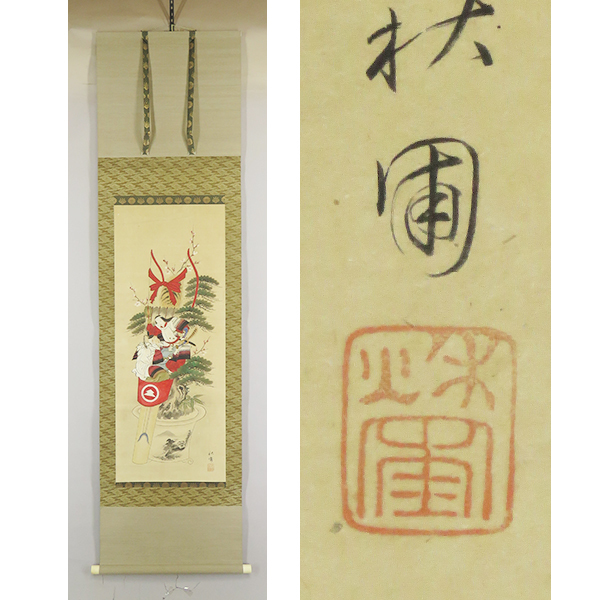 秋
圃
秋
圃